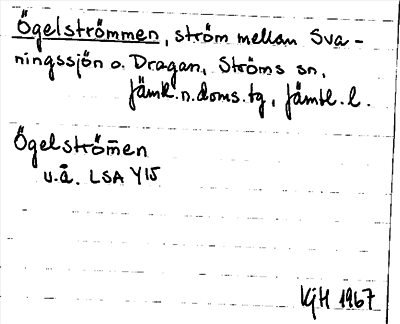 Ögelströmmen, ström mellan Sva-
ningssjön o. Dragan, Ströms sn,
Jämtl.n.doms.tg, Jämtl.l.
Ögelström̄en
u.å. LSA Y15
KjH 1967